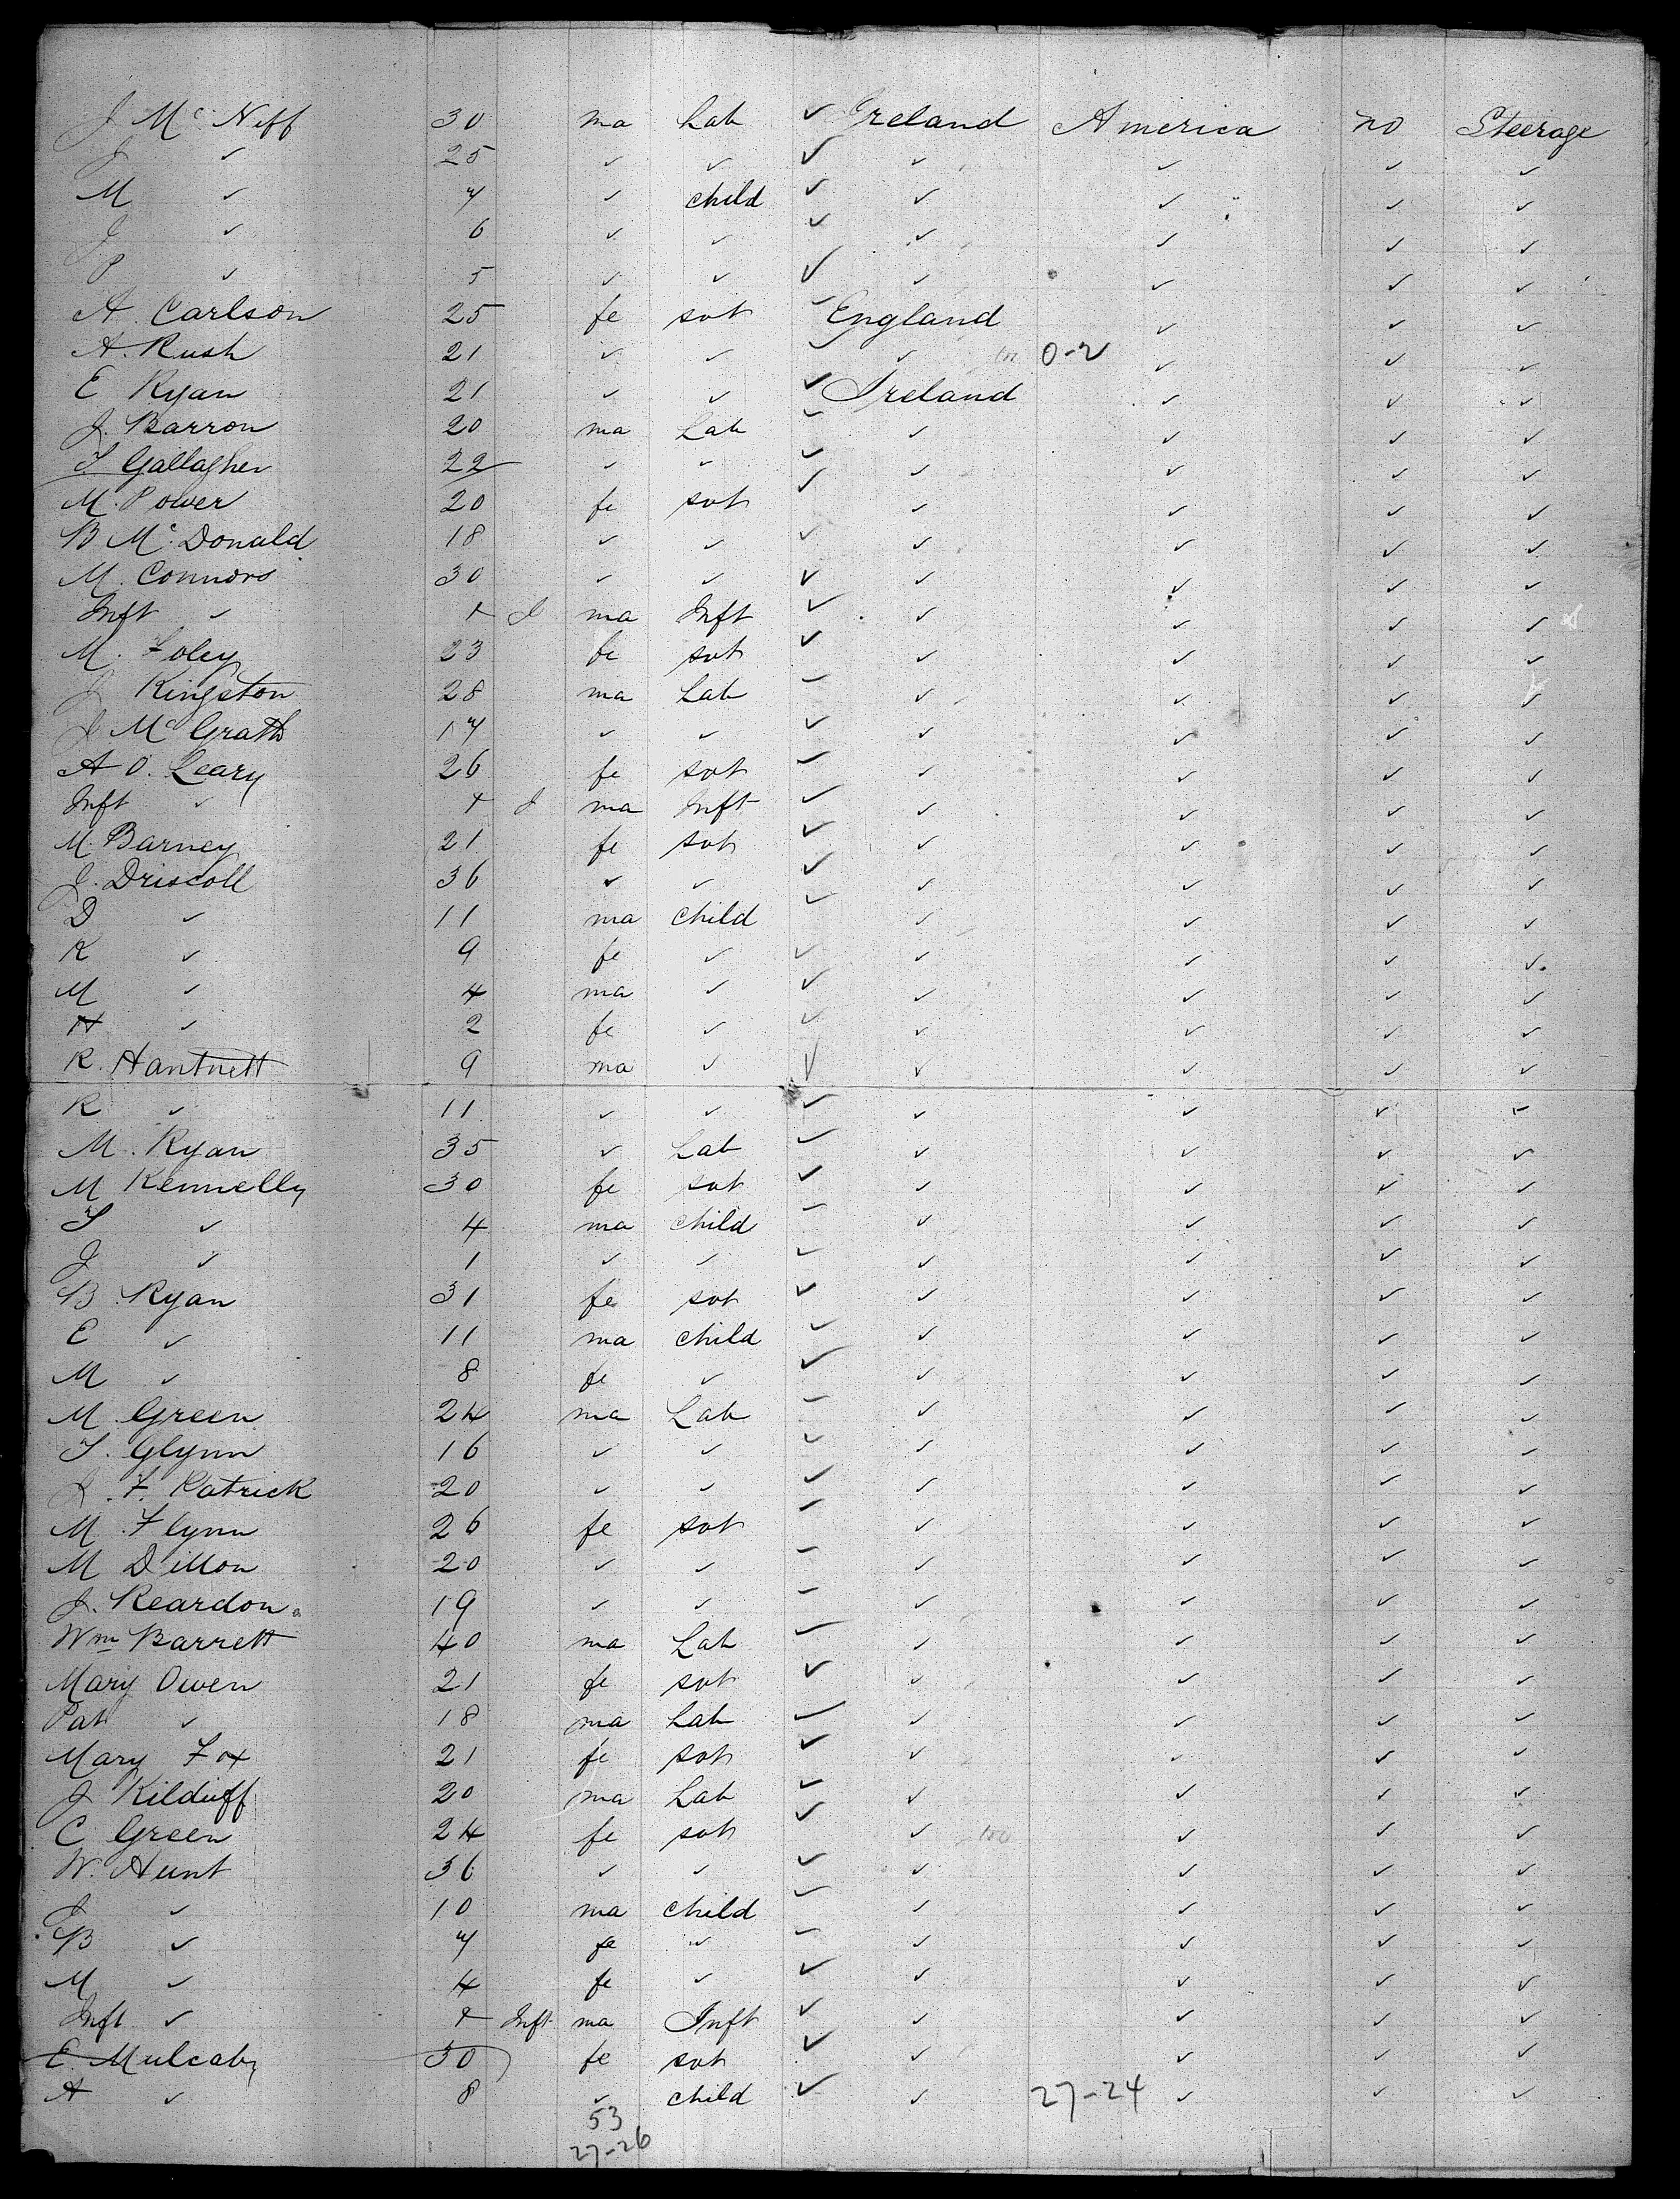 J Mc Niff 30 ma Lab ✓ Ireland America no Steerage
J ✓ 25 ✓ ✓ ✓ ✓ ✓ ✓ ✓
M ✓ 7 ✓ child ✓ ✓ ✓ ✓ ✓
J ✓ 6 ✓ ✓ ✓ ✓ ✓ ✓ ✓
P ✓ 5 ✓ ✓ ✓ ✓ ✓ ✓ ✓
A Carlson 25 fe svt ✓ England ✓ ✓ ✓
A. Rush 21 ✓ ✓ ✓ ✓ 0-2 ✓ ✓ ✓
E Ryan 21 ✓ ✓ ✓ Ireland ✓ ✓ ✓
J. Barron 20 ma Lab ✓ ✓ ✓ ✓ ✓
T Gallagher 22 ✓ ✓ ✓ ✓ ✓ ✓ ✓
M. Power 20 fe svt ✓ ✓ ✓ ✓ ✓
B Mc Donald 18 ✓ ✓ ✓ ✓ ✓ ✓ ✓
M. Connors 30 ✓ ✓ ✓ ✓ ✓ ✓ ✓
Inft ✓ I ma Inft ✓ ✓ ✓ ✓ ✓
M. Foley 23 fe svt ✓ ✓ ✓ ✓ ✓
J Kingston 28 ma Lab ✓ ✓ ✓ ✓ ✓
J Mc Grath 17 ✓ ✓ ✓ ✓ ✓ ✓ ✓
A O. Leary 26 fe svt ✓ ✓ ✓ ✓ ✓
Inft ✓ I ma Inft ✓ ✓ ✓ ✓ ✓
M. Barney 21 fe svt ✓ ✓ ✓ ✓ ✓
J. Driscoll 36 ✓ ✓ ✓ ✓ ✓ ✓ ✓
D ✓ 11 ma child ✓ ✓ ✓ ✓ ✓
K ✓ 9 fe ✓ ✓ ✓ ✓ ✓ ✓
M ✓ 4 ma ✓ ✓ ✓ ✓ ✓ ✓
H ✓ 2 fe ✓ ✓ ✓ ✓ ✓ ✓
R. Hantnett 9 ma ✓ ✓ ✓ ✓ ✓ ✓
R ✓ 11 ✓ ✓ ✓ ✓ ✓ ✓ ✓
M. Ryan 35 ✓ Lab ✓ ✓ ✓ ✓ ✓
M Kennelly 30 fe svt ✓ ✓ ✓ ✓ ✓
T ✓ 4 ma child ✓ ✓ ✓ ✓ ✓
J ✓ 1 ✓ ✓ ✓ ✓ ✓ ✓ ✓
B. Ryan 31 fe svt ✓ ✓ ✓ ✓ ✓
E ✓ 11 ma child ✓ ✓ ✓ ✓ ✓
M ✓ 8 fe ✓ ✓ ✓ ✓ ✓ ✓
M. Green 24 ma Lab ✓ ✓ ✓ ✓ ✓
T. Glynn 16 ✓ ✓ ✓ ✓ ✓ ✓ ✓
J. F. Patrick 20 ✓ ✓ ✓ ✓ ✓ ✓ ✓
M. Flynn 26 fe svt ✓ ✓ ✓ ✓ ✓
M Dillon 20 ✓ ✓ ✓ ✓ ✓ ✓ ✓
J. Reardon 19 ✓ ✓ ✓ ✓ ✓ ✓ ✓
Wm Barrett 40 ma Lab ✓ ✓ ✓ ✓ ✓
Mary Owen 21 fe svt ✓ ✓ ✓ ✓ ✓
Pat ✓ 18 ma Lab ✓ ✓ ✓ ✓ ✓
Mary Fox 21 fe svt ✓ ✓ ✓ ✓ ✓
J Kilduff 20 ma Lab ✓ ✓ ✓ ✓ ✓
C Green 24 fe svt ✓ ✓ ✓ ✓ ✓
W. Hunt 36 ✓ ✓ ✓ ✓ ✓ ✓ ✓
J ✓ 10 ma child ✓ ✓ ✓ ✓ ✓
B ✓ 7 fe ✓ ✓ ✓ ✓ ✓ ✓
M ✓ 4 fe ✓ ✓ ✓ ✓ ✓ ✓
Inft ✓ Inft ma Inft ✓ ✓ ✓ ✓ ✓
E. Mulcahy 30 fe svt ✓ ✓ ✓ ✓ ✓
A ✓ 8 ✓ child ✓ ✓ 27-24 ✓ ✓ ✓
53
27-26